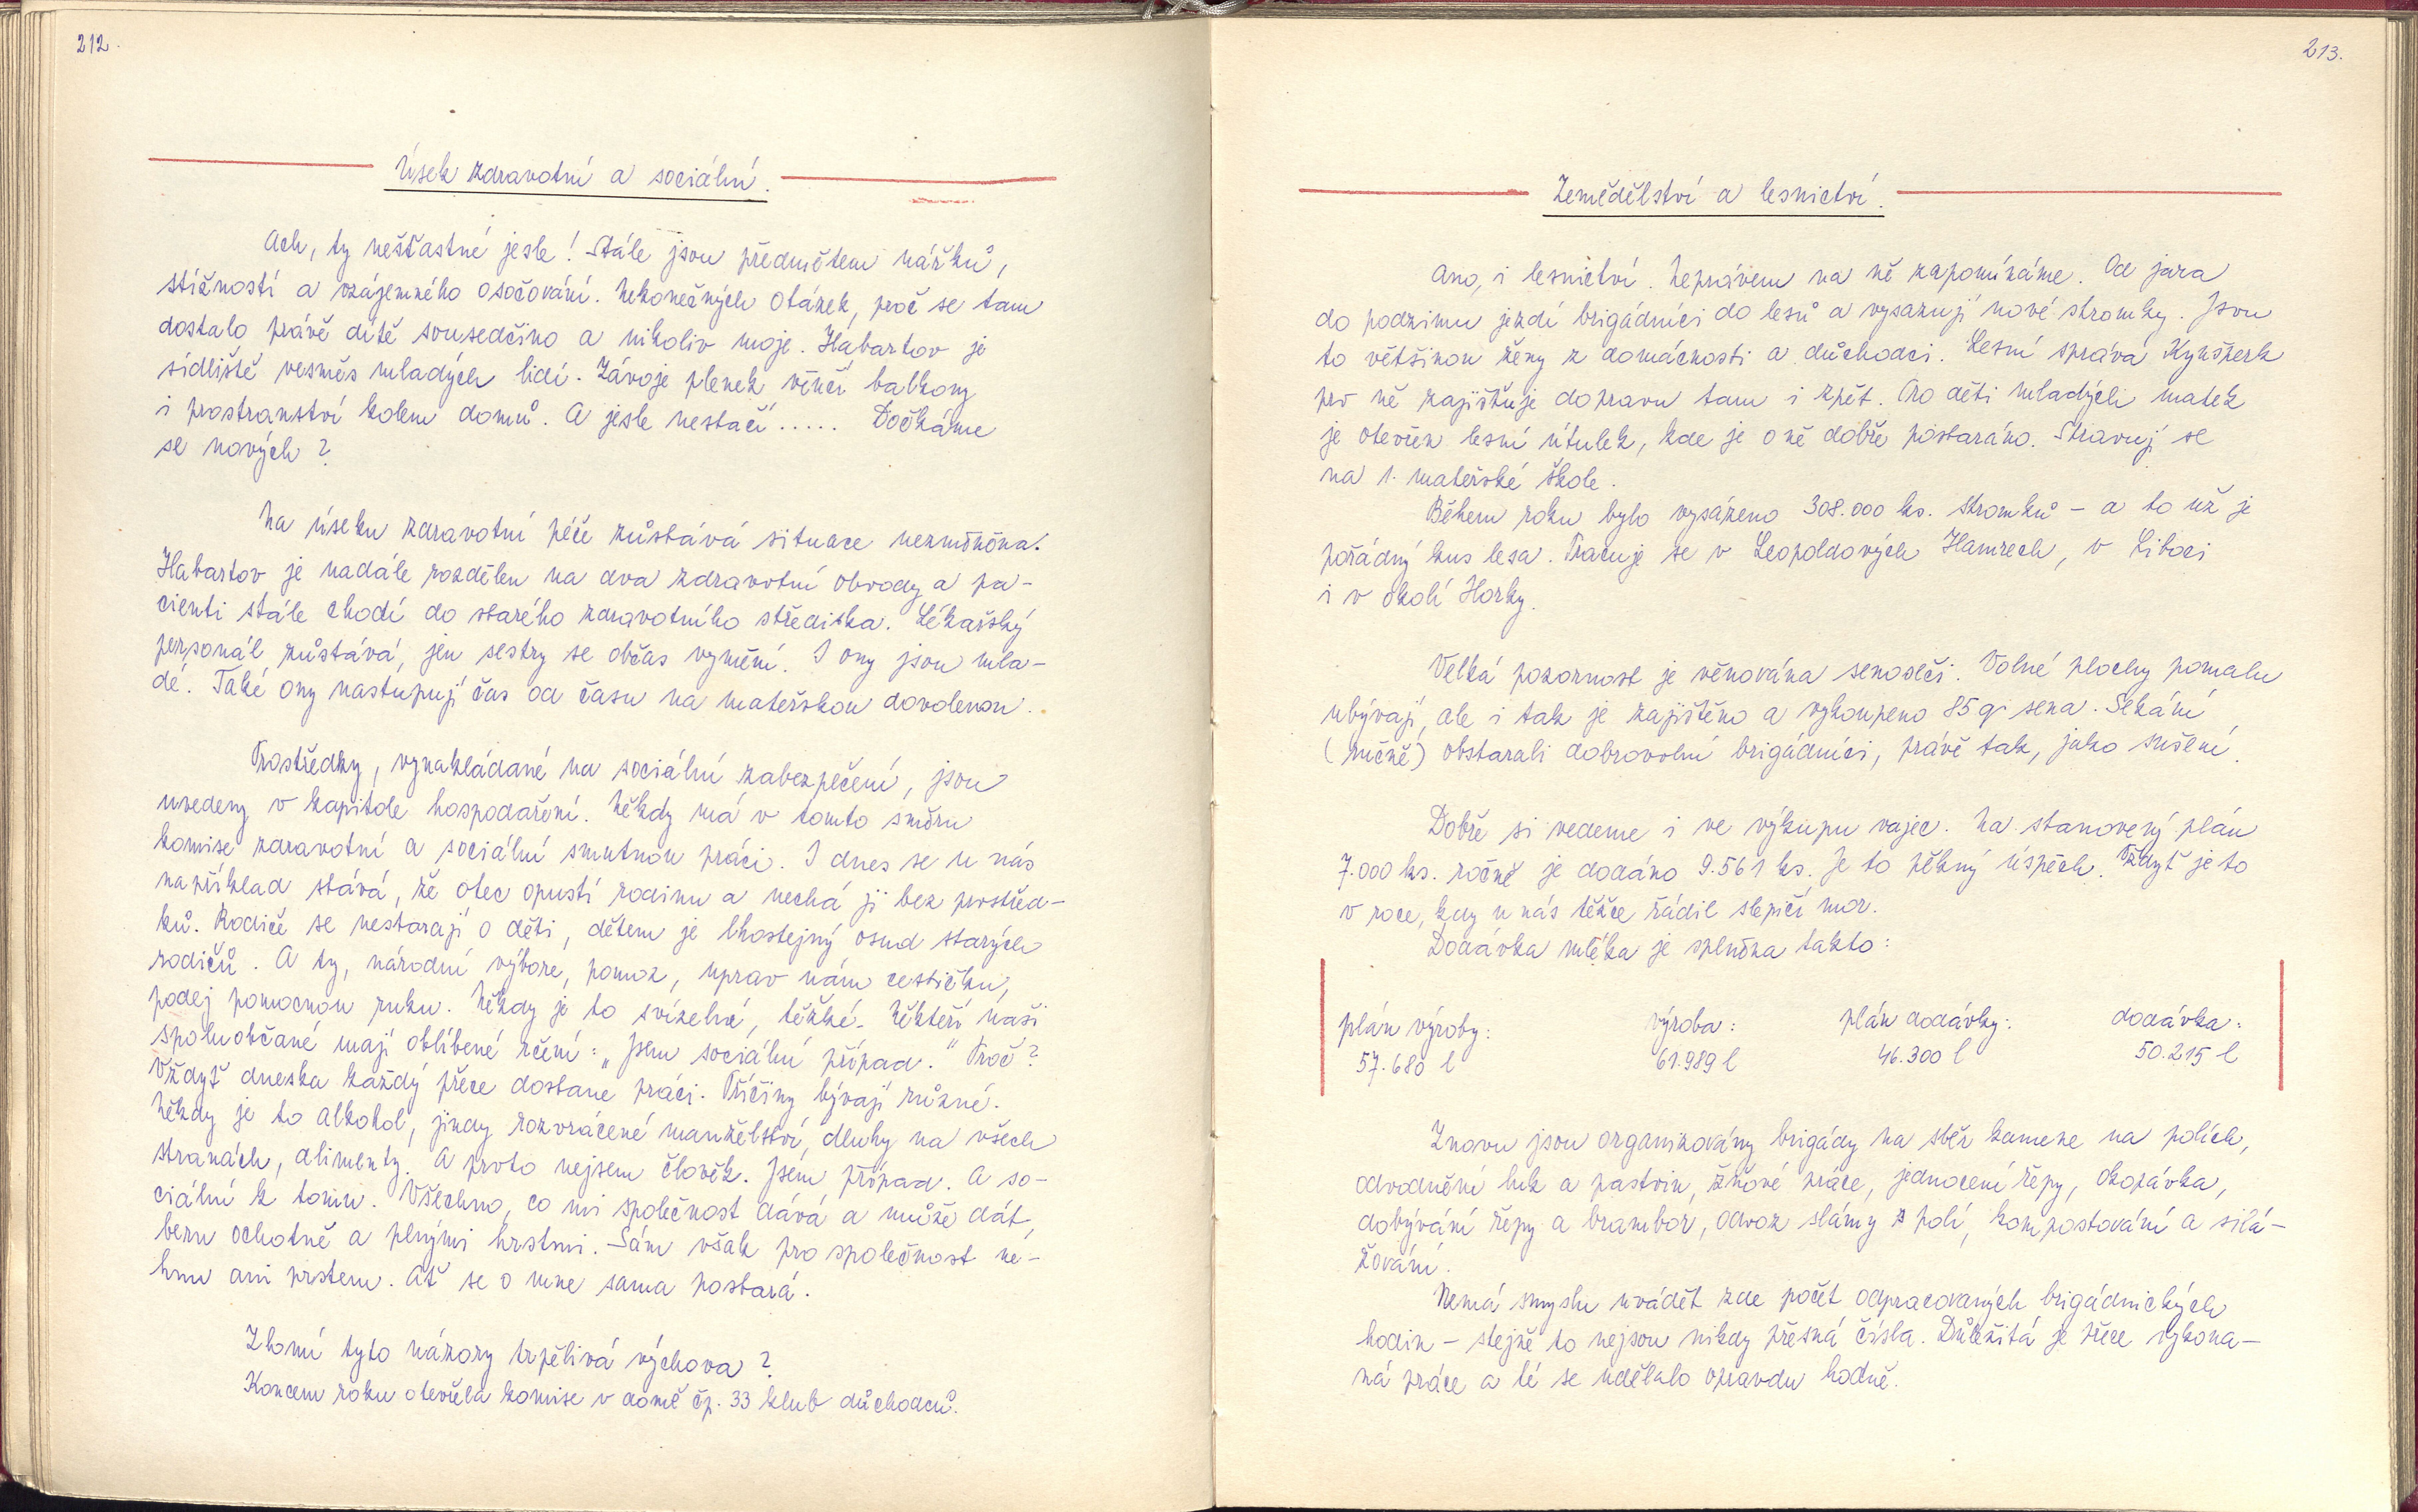 212.
Úsek zdravotní a sociální.
Ach, ty nešťastné jesle! Stále jsou předmětem nářků,
stížností a vzájemného osočování. Nekonečných otázek, proč se tam
dostalo právě dítě sousedčino a nikoliv moje. Habartov je
sídliště vesměs mladých lidí. Závoje plenek věnčí balkony
i prostranství kolem domů. A jesle nestačí ..... Dočkáme
se nových?
Na úseku zdravotní péče zůstává situace nezměněna.
Habartov je nadále rozdělen na dva zdravotní obvody a pa-
cienti stále chodí do starého zdravotního střediska. Lékařský
personál zůstává, jen sestry se občas vymění. I ony jsou mla-
dé. Také ony nastupují čas od času na mateřskou dovolenou.
Prostředky, vynakládané na sociální zabezpečení, jsou
uvedeny v kapitole hospodaření. Někdy má v tomto směru
komise zdravotní a sociální smutnou práci. I dnes se u nás
například stává, že otec opustí rodinu a nechá ji bez prostřed-
ků. Rodiče se nestarají o děti, dětem je lhostejný osud starých
rodičů. A ty, národní výbore, pomoz, uprav nám cestičku,
podej pomocnou ruku. Někdy je to svízelné, těžké. Někteří naši
spoluobčané mají oblíbené rčení: „Jsem sociální případ." Proč?
Vždyť dneska každý přece dostane práci. Příčiny bývají různé.
Někdy je to alkohol, jindy rozvrácené manželství, dluhy na všech
stranách, alimenty. A proto nejsem člověk. Jsem případ. A so-
ciální k tomu. Všechno, co mi společnost dává a může dát,
beru ochotně a plnými hrstmi. Sám však pro společnost ne-
hnu ani prstem. Ať se o mne sama postará.
Zlomí tyto názory trpělivá výchova?
Koncem roku otevřela komise v domě čp. 33 klub důchodců.
213.
Zemědělství a lesnictví.
Ano, i lesnictví. Neprávem na ně zapomínáme. Od jara
do podzimu jezdí brigádníci do lesů a vysazují nové stromky. Jsou
to většinou ženy z domácnosti a důchodci. Lesní správa Kynšperk
pro ně zajišťuje dopravu tam i zpět. Pro děti mladých matek
je otevřen lesní útulek, kde je o ně dobře postaráno. Stravují se
na 1. mateřské škole.
Během roku bylo vysázeno 308.000 ks. stromků - a to už je
pořádný kus lesa. Pracuje se v Leopoldových Hamrech, v Liboci
i v okolí Horky.
Velká pozornost je věnována senoseči. Volné plochy pomalu
ubývají, ale i tak je zajištěno a vykoupeno 85 q sena. Sekání
(ručně) obstarali dobrovolní brigádníci, právě tak, jako sušení.
Dobře si vedeme i ve výkupu vajec. Na stanovený plán
7.000 ks. ročně je dodáno 9.561 ks. Je to pěkný úspěch. Vždyť je to
v roce, kdy u nás těžce řádil slepičí mor.
Dodávka mléka je splněna takto:
plán výroby: výroba: plán dodávky: dodávka:
57.680 l 61.989 l 46.300 l 50.215 l
Znovu jsou organizovány brigády na sběr kamene na polích,
odvodnění luk a pastvin, žňové práce, jednocení řepy, okopávka,
dobývání řepy a brambor, odvoz slámy z polí, kompostování a silá-
žování.
Nemá smyslu uvádět zde počet odpracovaných brigádnických
hodin - stejně to nejsou nikdy přesná čísla. Důležitá je přece vykona-
ná práce a té se udělalo opravdu hodně.